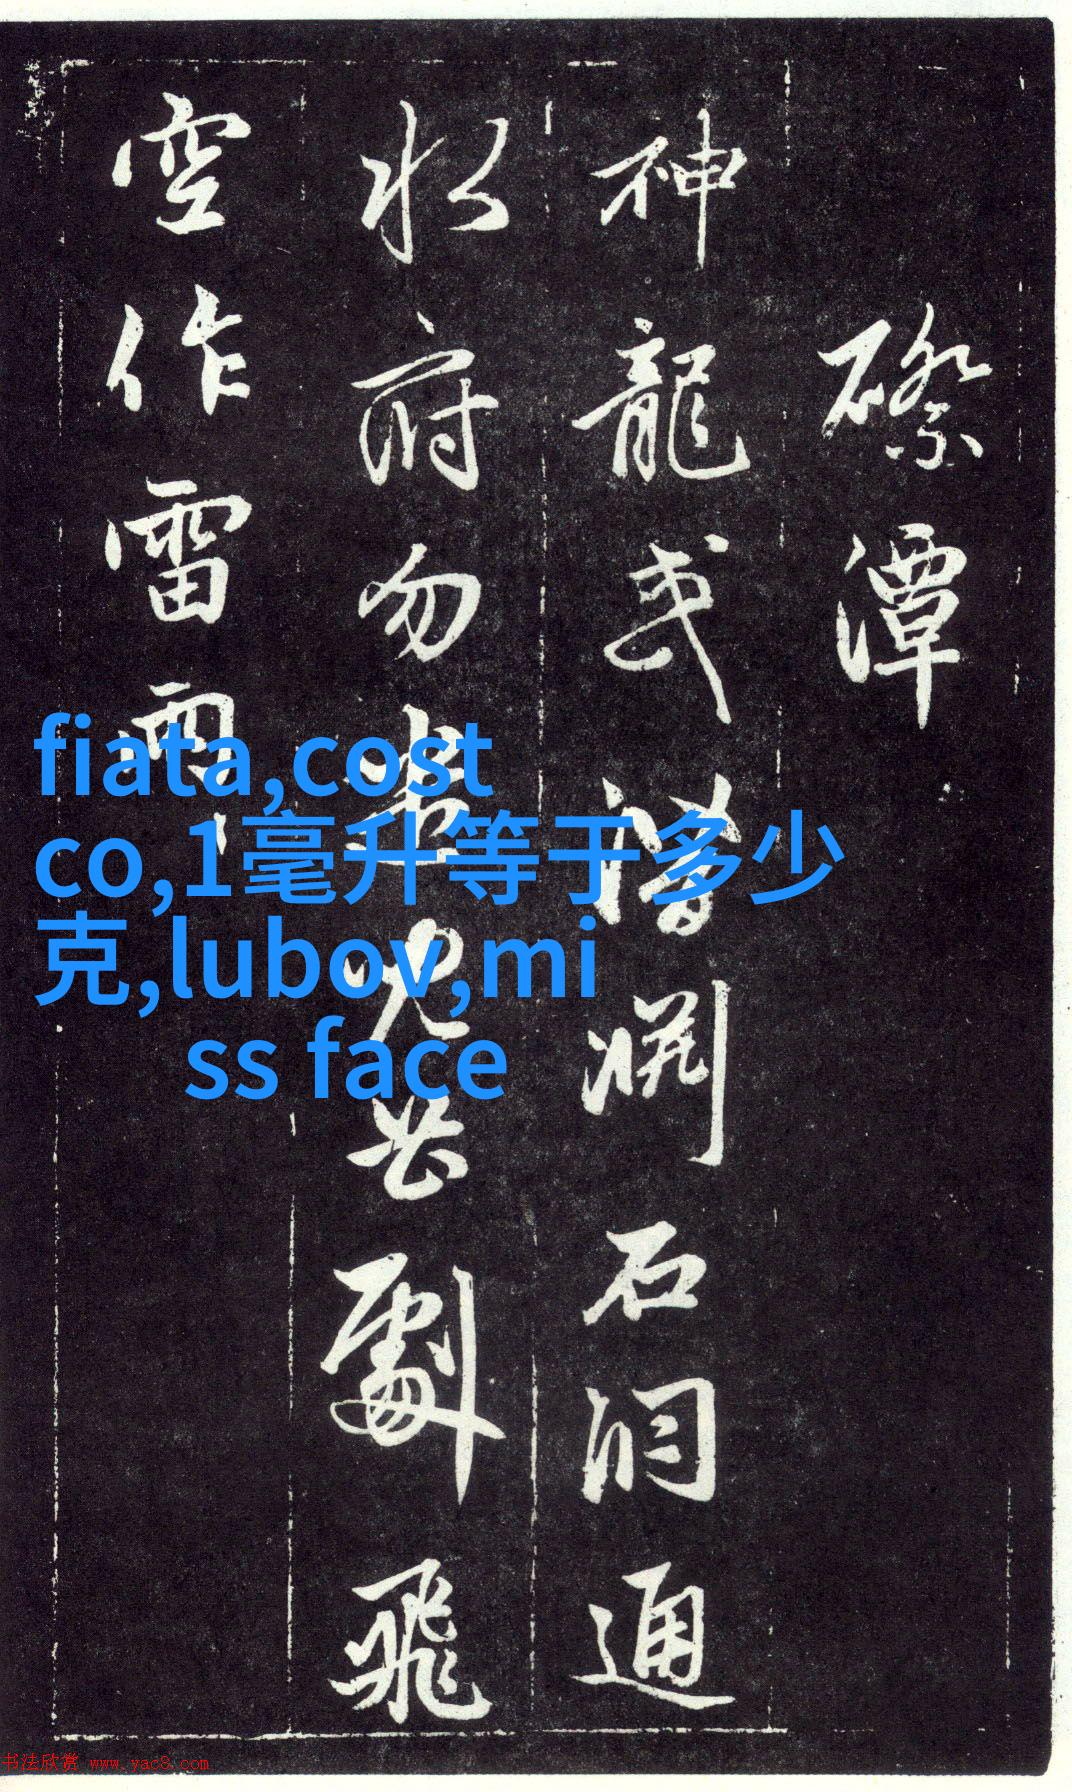 潭
神龍或潛淵石洞通
水府勿劇飛
空作雷雨
fiata,cost
co,1毫升等于多少
克,lubov,mi
ss face
书法欣赏 www.yac8.com